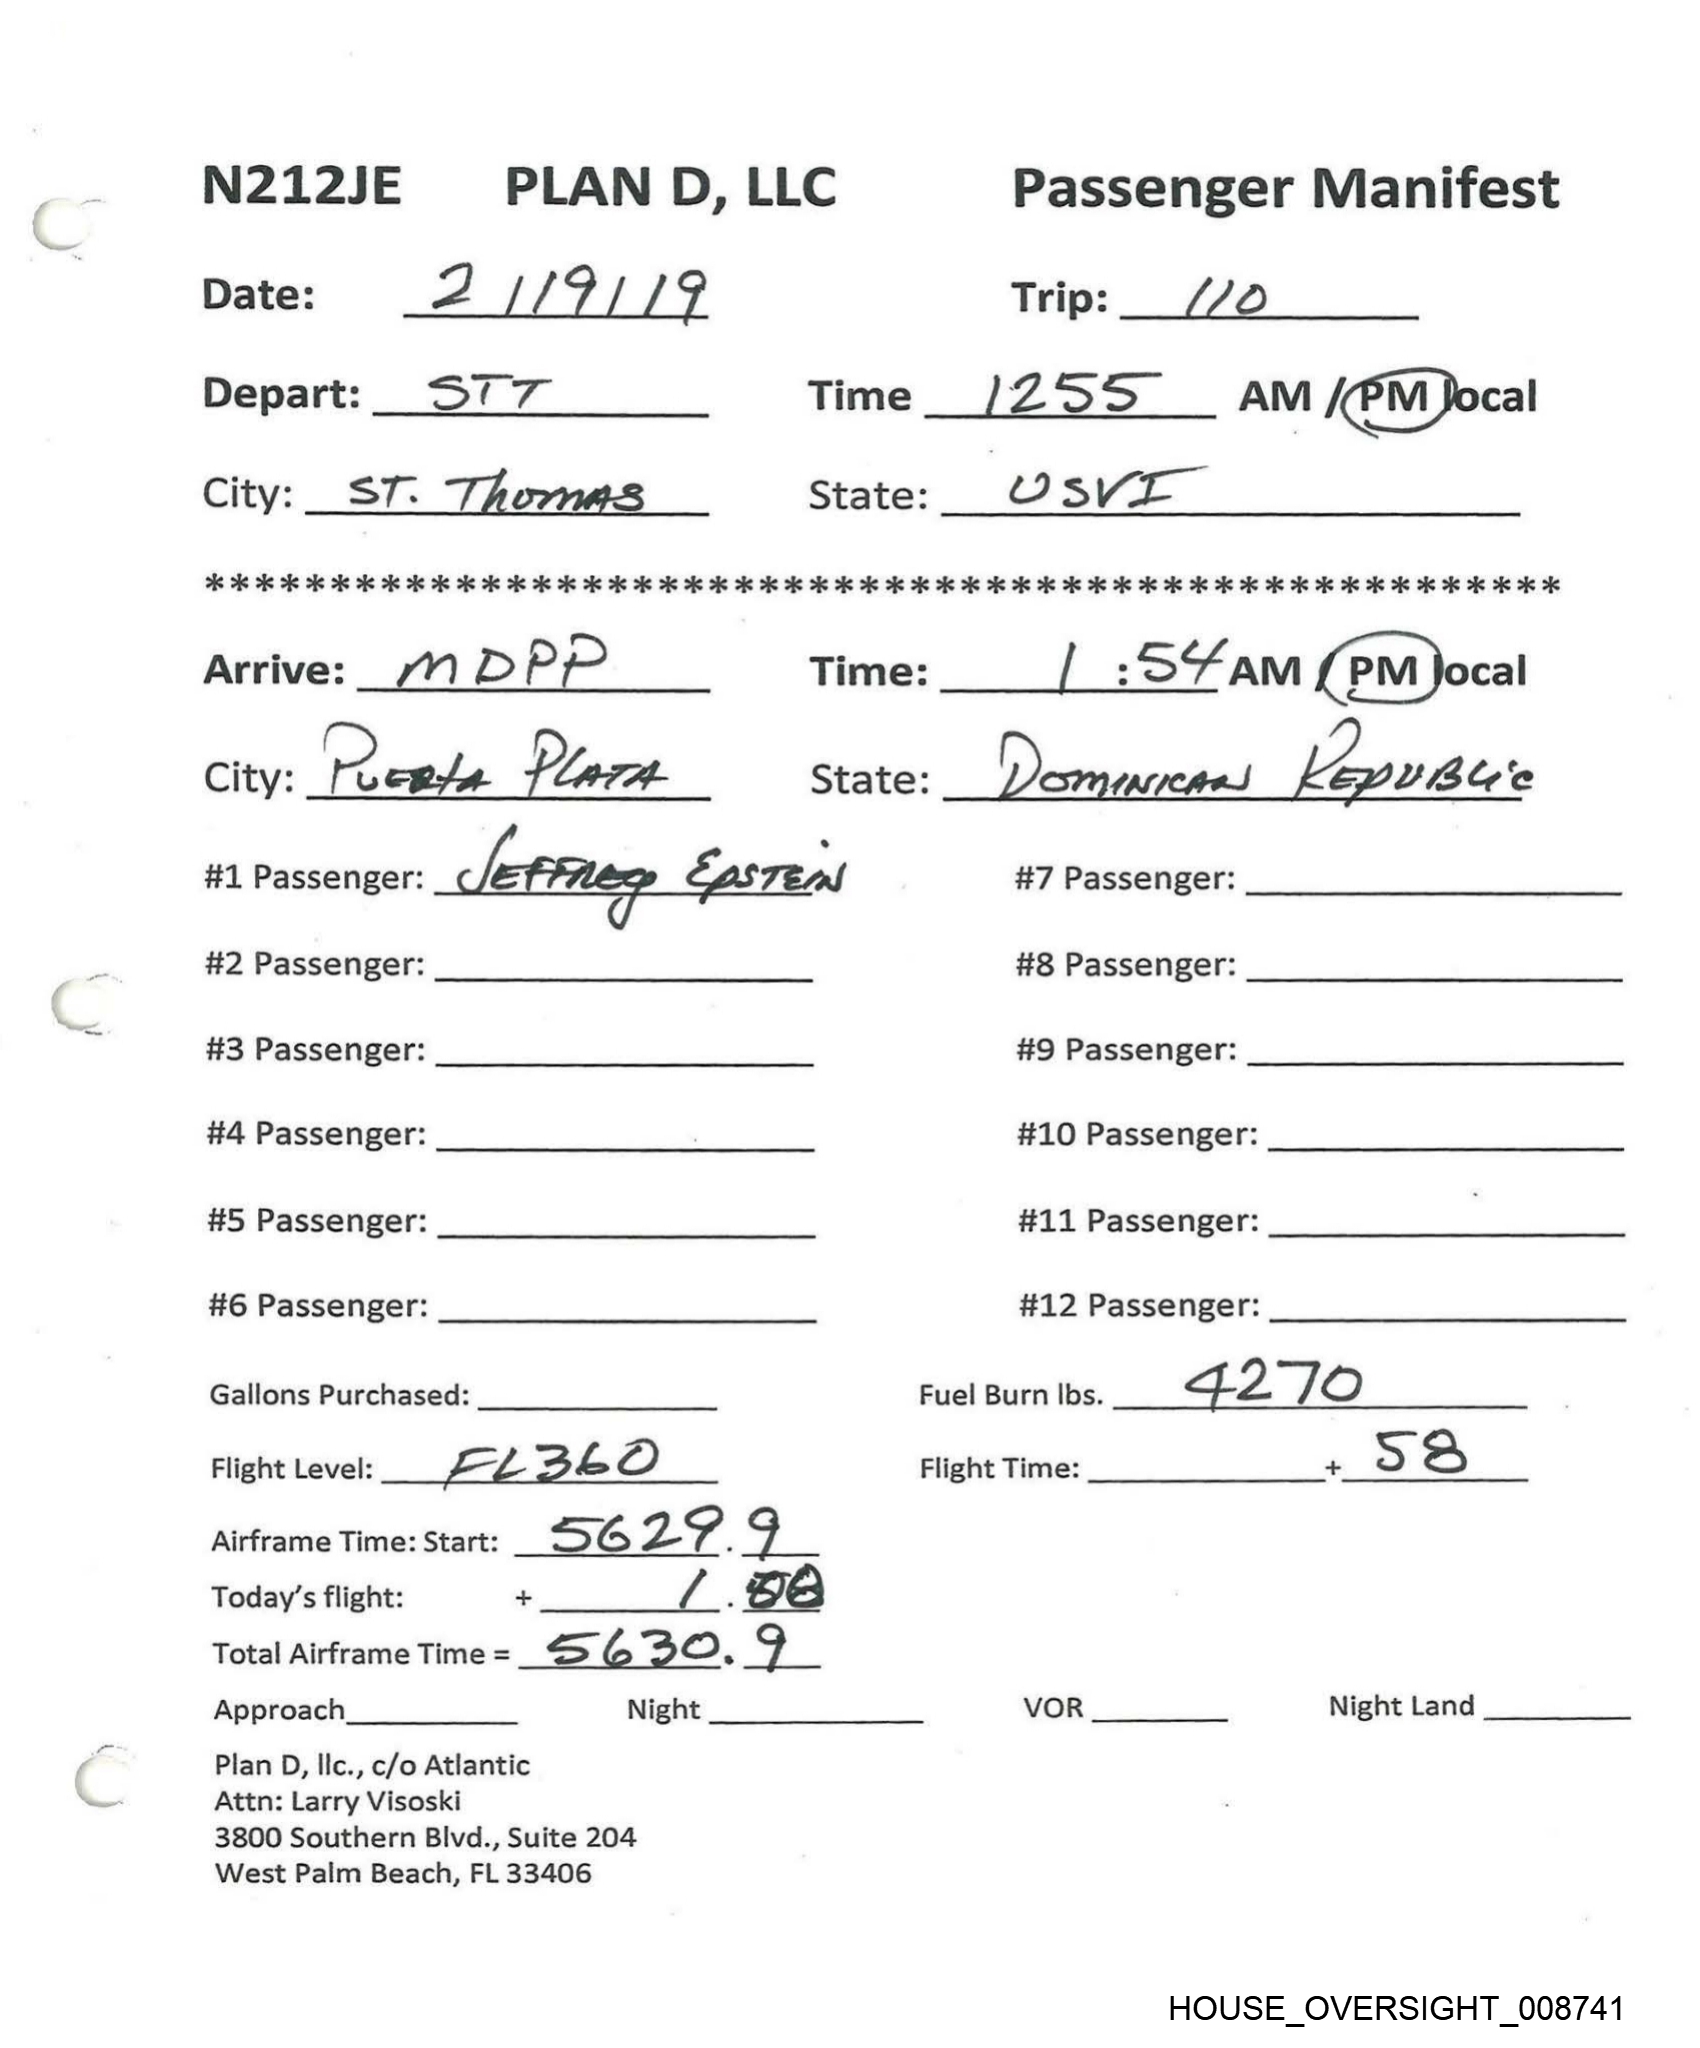 N212JE PLAN D, LLC Passenger Manifest
Date: 2/19/19 Trip: 110
Depart: STT Time 1255 AM / PM local
City: ST. THOMAS State: USVI
******************************************************
Arrive: MDPP Time: 1:54 AM / PM local
City: PUERTA PLATA State: DOMINICAN REPUBLIC
#1 Passenger: JEFFREY EPSTEIN #7 Passenger:
#2 Passenger: #8 Passenger:
#3 Passenger: #9 Passenger:
#4 Passenger: #10 Passenger:
#5 Passenger: #11 Passenger:
#6 Passenger: #12 Passenger:
Gallons Purchased: Fuel Burn lbs. 4270
Flight Level: FL360 Flight Time: + 58
Airframe Time: Start: 5629.9
Today's flight: + 1.
Total Airframe Time = 5630.9
Approach Night VOR Night Land
Plan D, llc., c/o Atlantic
Attn: Larry Visoski
3800 Southern Blvd., Suite 204
West Palm Beach, FL 33406
HOUSE_OVERSIGHT_008741